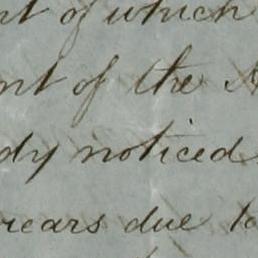 nt of which
nt of the
dy noticed
rears due to